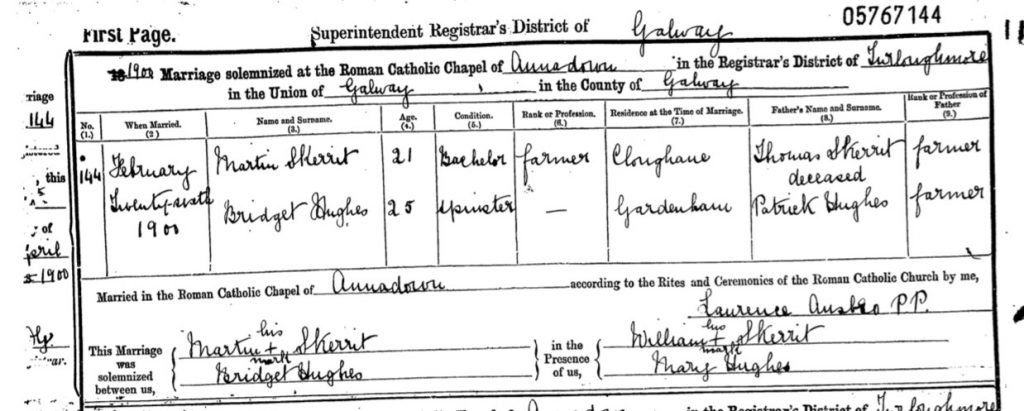 05767144
First Page. Superintendent Registrar's District of Galway
1900 Marriage solemnized at the Roman Catholic Chapel of Annadown in the Registrar's District of Turloughmore
in the Union of Galway, in the County of Galway
No. (1.) When Married. (2.) Name and Surname. (3.) Age. (4.) Condition. (5.) Rank or Profession. (6.) Residence at the Time of Marriage. (7.) Father's Name and Surname. (8.) Rank or Profession of Father (9.)
144 February Martin Skerrit 21 Bachelor farmer Cloughane Thomas Skerrit deceased farmer
Twenty-sixth 1900 Bridget Hughes 25 Spinster — Gardenham Patrick Hughes farmer
Married in the Roman Catholic Chapel of Annadown according to the Rites and Ceremonies of the Roman Catholic Church by me,
Laurence P.P.
This Marriage was solemnized between us, Martin his + mark Skerrit
Bridget Hughes
in the Presence of us, William his + mark Skerrit
Mary Hughes
riage
144
, this
of
april
1900
Annadown in the Registrar's District of Turloughmore